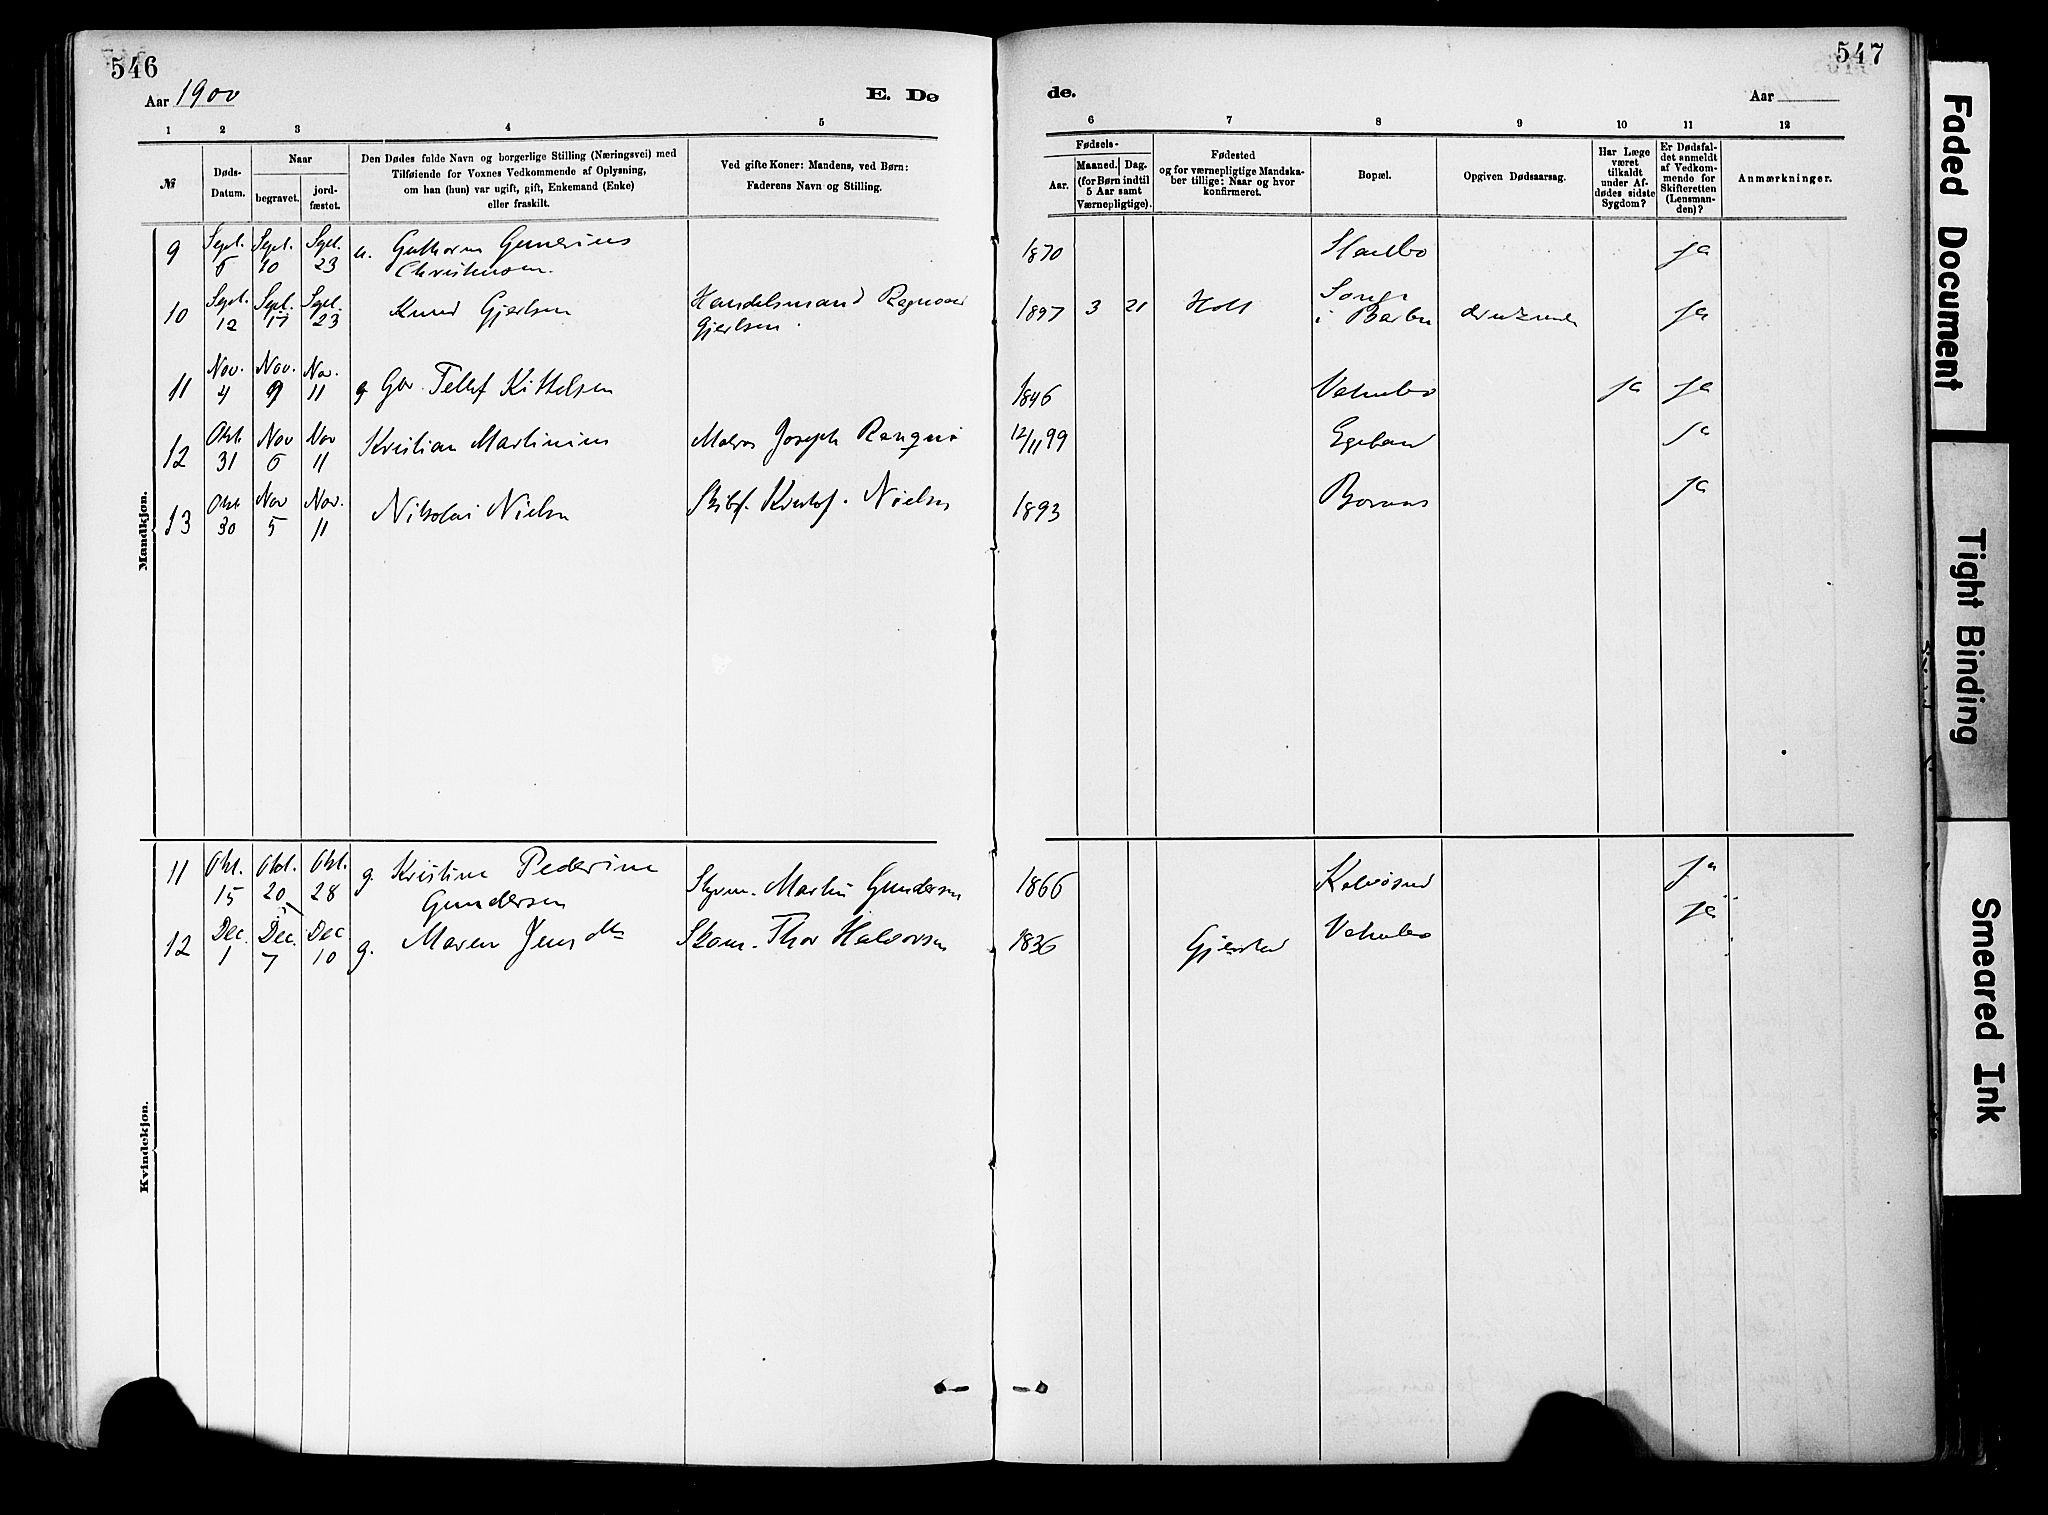 546
Aar 1900
E. Dø
1 2 3 4 5
№
Døds-
Datum.
Naar
begravet.
jord-
fæstet.
Den Dødes fulde Navn og borgerlige Stilling (Næringsvei) med
Tilføiende for Voxnes Vedkommende af Oplysning,
om han (hun) var ugift, gift, Enkemand (Enke)
eller fraskilt.
Ved gifte Koner: Mandens, ved Børn:
Faderens Navn og Stilling.
Mandkjøn.
9 Sept. Sept. Sept. u. Guthorm Gunerius
6 10 23 Christensen.
10 Sept. Sept. Sept. Knud Gjertsen Handelsmand Ragnvald
12 17 23 Gjertsen.
11 Nov. Nov. Nov. g Gbr. Tellef Kittelsen
4 9 11
12 Okt Nov Nov Kristian Martinius Matros Joseph
31 6 11
13 Okt Nov Nov. Nikolai Nielsen Skibsf. Kristof. Nielsen
30 5 11
Kvindekjøn.
11 Okt. Okt. Okt. g. Kristine Pederine
15 20 28 Gundersen Styrm. Martin Gundersen
12 Dec. Dec. Dec g. Maren Jensdtr Thor Halvorsen
1 7 10
547
de.
Aar
6 7 8 9 10 11 12
Fødsels-
Aar.
Maaned.
Dag.
(for Børn indtil
5 Aar samt
Værnepligtige).
Fødested
og for værnepligtige Mandska-
ber tillige: Naar og hvor
konfirmeret.
Bopæl.
Opgiven Dødsaarsag.
Har Læge
været
tilkaldt
under Af-
dødes sidste
Sygdom?
Er Dødsfal-
det anmeldt
af Vedkom-
mende for
Skifteretten
(Lensman-
den)?
Anmærkninger.
1870 ja
1897 3 21 Holt Songe
i Barbu ja
1846 ja ja
12/11 99 Egeland ja
1893 Boraas ja
1866 Kalvøsund ja
1836 Gjerstad ja
Faded Document
Tight Binding
Smeared Ink